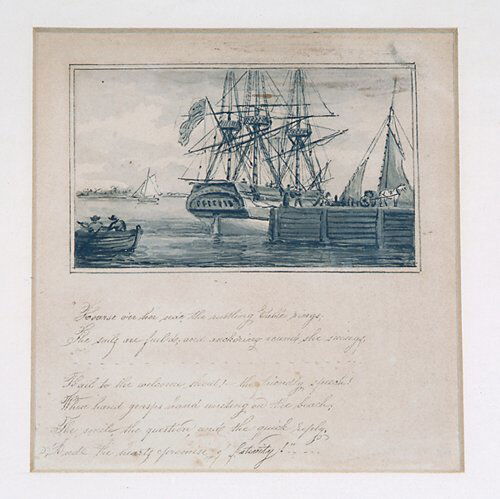 "Hoarse o'er her side the rustling Cable rings,
The sails are furl'd, and anchoring round she swings,
Hail to the welcome shout! the friendly speech!
When hand grasps hand uniting on the beach,
The smile, the question, and the quick reply,
And the hearts promise of festivity!"